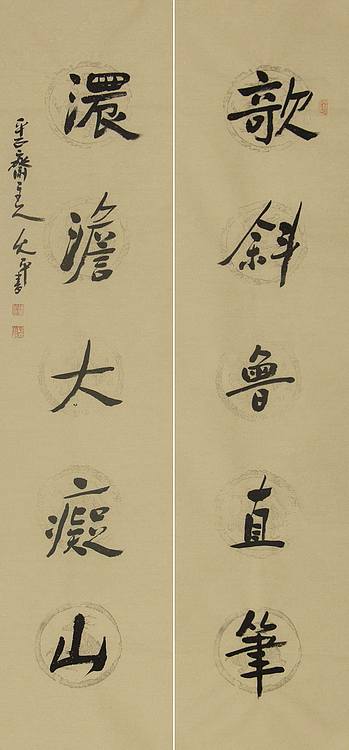 欹斜魯直筆
濃澹大癡山
齋主人 書